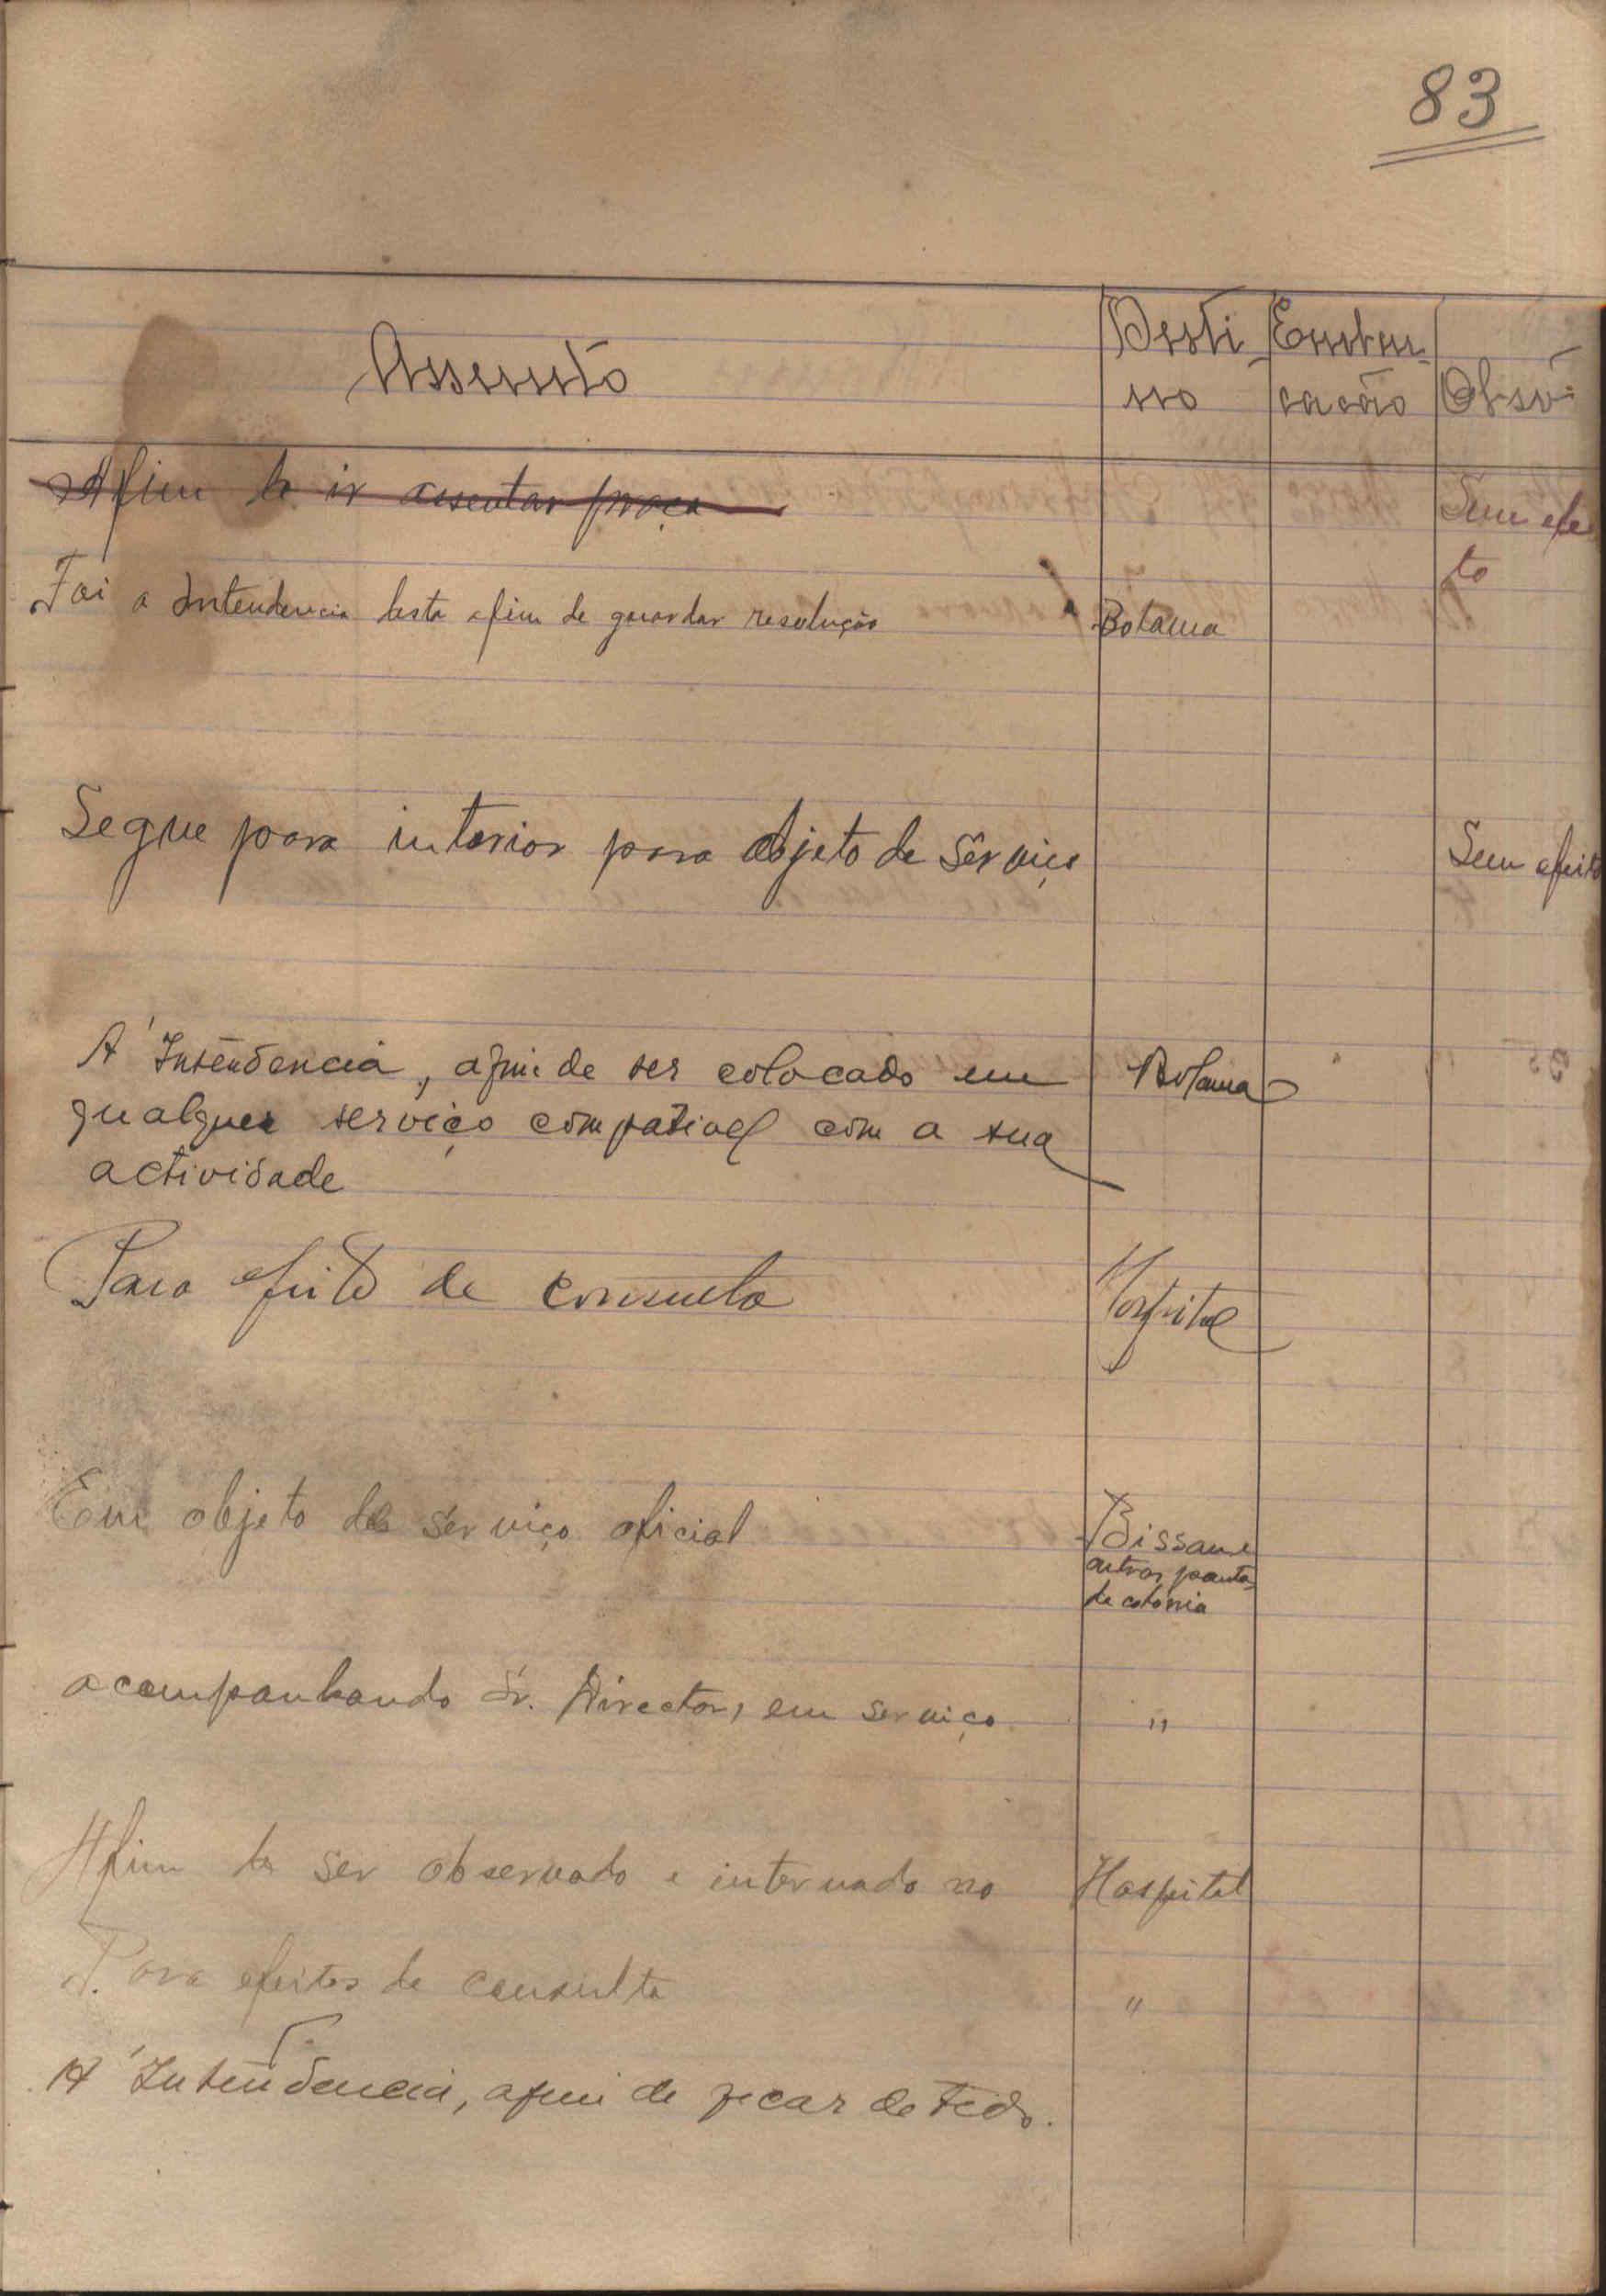 83
Assunto
Desti-
no
cação
Obsv:
Afim de ir assentar praça
Sem efe
to
Foi a Intendencia desta afim de guardar resolução
Bolama
Segue para interior para objeto de serviço
Sem efeito
A' Intendencia, afim de ser colocado em
Bolama
qualquer serviço compativel com a sua
actividade
Para efeito de consulta
Hospital
Em objeto de serviço oficial
Bissau e
outros pontos
de colónia
acompanhando Sr. Director, em serviço
"
Afim de ser observado e internado no
Hospital
Para efeitos de consulta
"
A' Intendencia, afim de ficar detido.